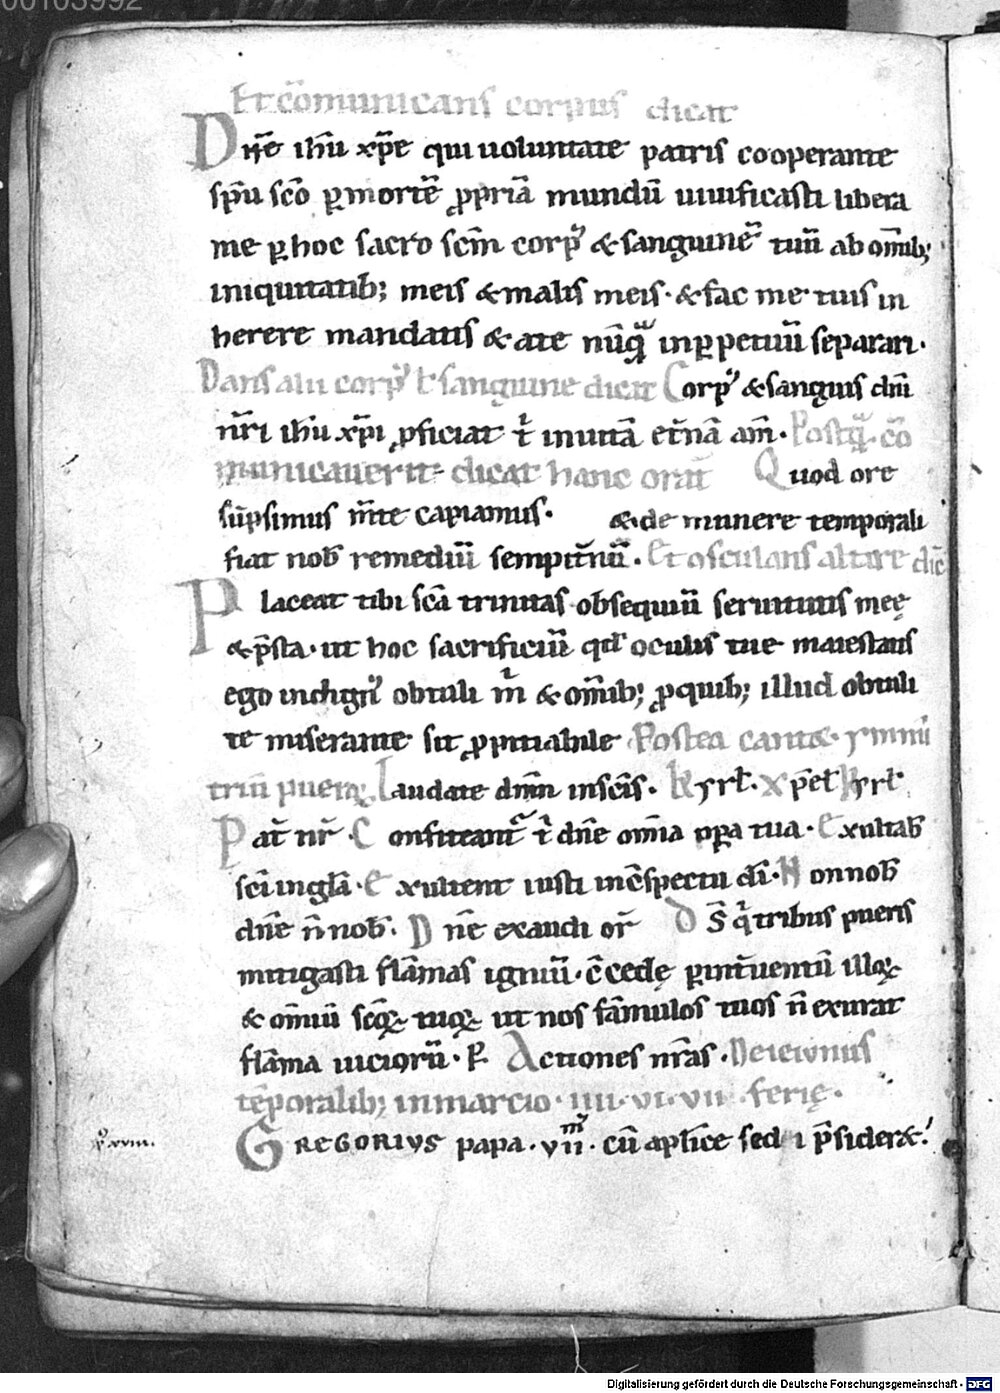 00103992
Et cõmunicans corpus dicat
Dñe ihũ xp̃e qui uoluntate patris cooperante
sp̃u scõ ꝑ mortẽ ꝓpriã mundũ uiuificasti libera
me ꝑ hoc sacro scm̃ corpꝰ & sanguinẽ tuũ ab om̃ib;
iniquitatib; meis & malis meis · & fac me tuis in
herere mandatis & a te nũqᷓ inꝑpetuũ separari ·
Dans alii corpꝰ ł sanguine dicat Corpꝰ & sanguis dñi
nr̃i ihũ xp̃i ꝓficiat t̍ in uitã et̃nã am̃ · Postqᷓ cõ
municauerit dicat hanc orat̃ Quod ore
sũpsimus m̃te capiamus · & de munere temporali
fiat nob̃ remediũ sempit̃nũ · Et osculans altare dic̃
Placeat tibi scã trinitas obsequiũ seruitutis meę
& p̃sta · ut hoc sacrificiũ qd̃ oculis tue maiestatis
ego indignꝰ obtuli m̍ & om̃ib; ꝓ quib; illud obtuli
te miserante sit ꝓpitiabile Postea cantet ymnũ
triũ pueroꝝ Laudate dñm in scĩs · Kyrł · Xp̃eł Kyrł
Pat̃ nr̃ · Confiteant᷑ t̍ dñe om̃ia oꝑa tua · Exultab̃
sc̃i in glã · Exultent iusti in c̃spectu dĩ · Non nob̃
dñe ñ nob̃ · Dñe exaudi or̃ Ds̃ q̍ tribus pueris
mitigasti flãmas igniũ · c̃cedę ꝑ int̃uentũ illoꝝ
& om̃iũ scõꝝ tuoꝝ ut nos fãmulos tuos ñ exurat
flãma uicioru̅ · ꝑ Actiones nr̃as · De ieiuniis
tẽporalib; in marcio · IIII · VI · VII · ferię ·
ꝓ xviii. GREGORIVS papa · VIIᵐꝰ · cũ aplĩce sedi p̃sideret ·
Digitalisierung gefördert durch die Deutsche Forschungsgemeinschaft - DFG